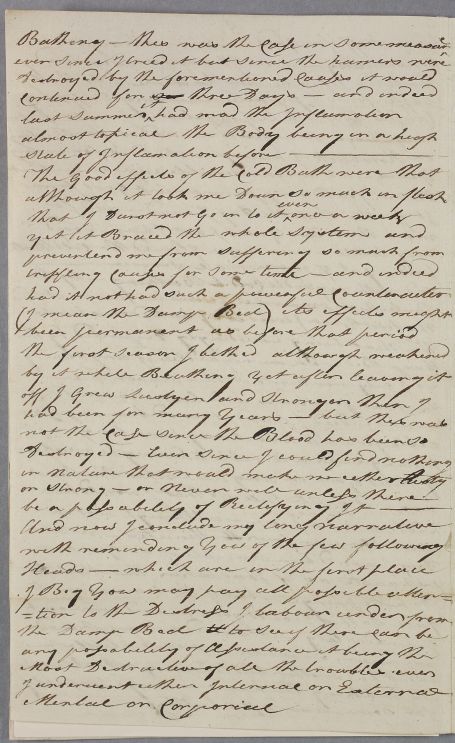 Bathing – this was the Case in some measure
ever since I tried it but since the humers were
Destroyed by the forementioned Causes it would
Continued for three Days – and indeed
last summer it had mad the Inflamation
almost topical the Body being in a high
State of Inflamation before –
The good effects of the Cold Bath were that
although it took me Down so much in flesh
that I Durst not Go in to it even once a week
yet it Braced the whole System and
prevented me from suffering so much from
triffling Causes for some time – and indeed
had it not had such a powerful Counteracter
(I mean the Damp Bed) its effects might
been permanent as before that period
the first season I bathed although weakened
by it while Beathing yet after leaving it
off I Grew and Stronger then I
had been for many Years – but this was
not the Case since the Blood has been so
Destroyed – Ever since I could find nothing
in Nature that would make me ether
or Strong – or Never will unless there
be a possability of Rectifying It –
And now I conclude my long Narrative
with reminding You of the few following
Heads – which are in the first place
I Beg You may pay all possible atten=
=tion to the Distress I labour under from
the Damp Bed to see if there Can be
any possability of assistance it being the
Most Destructive of all the troubles ever
I underwent ether Internal or External
Mental or Corporieal